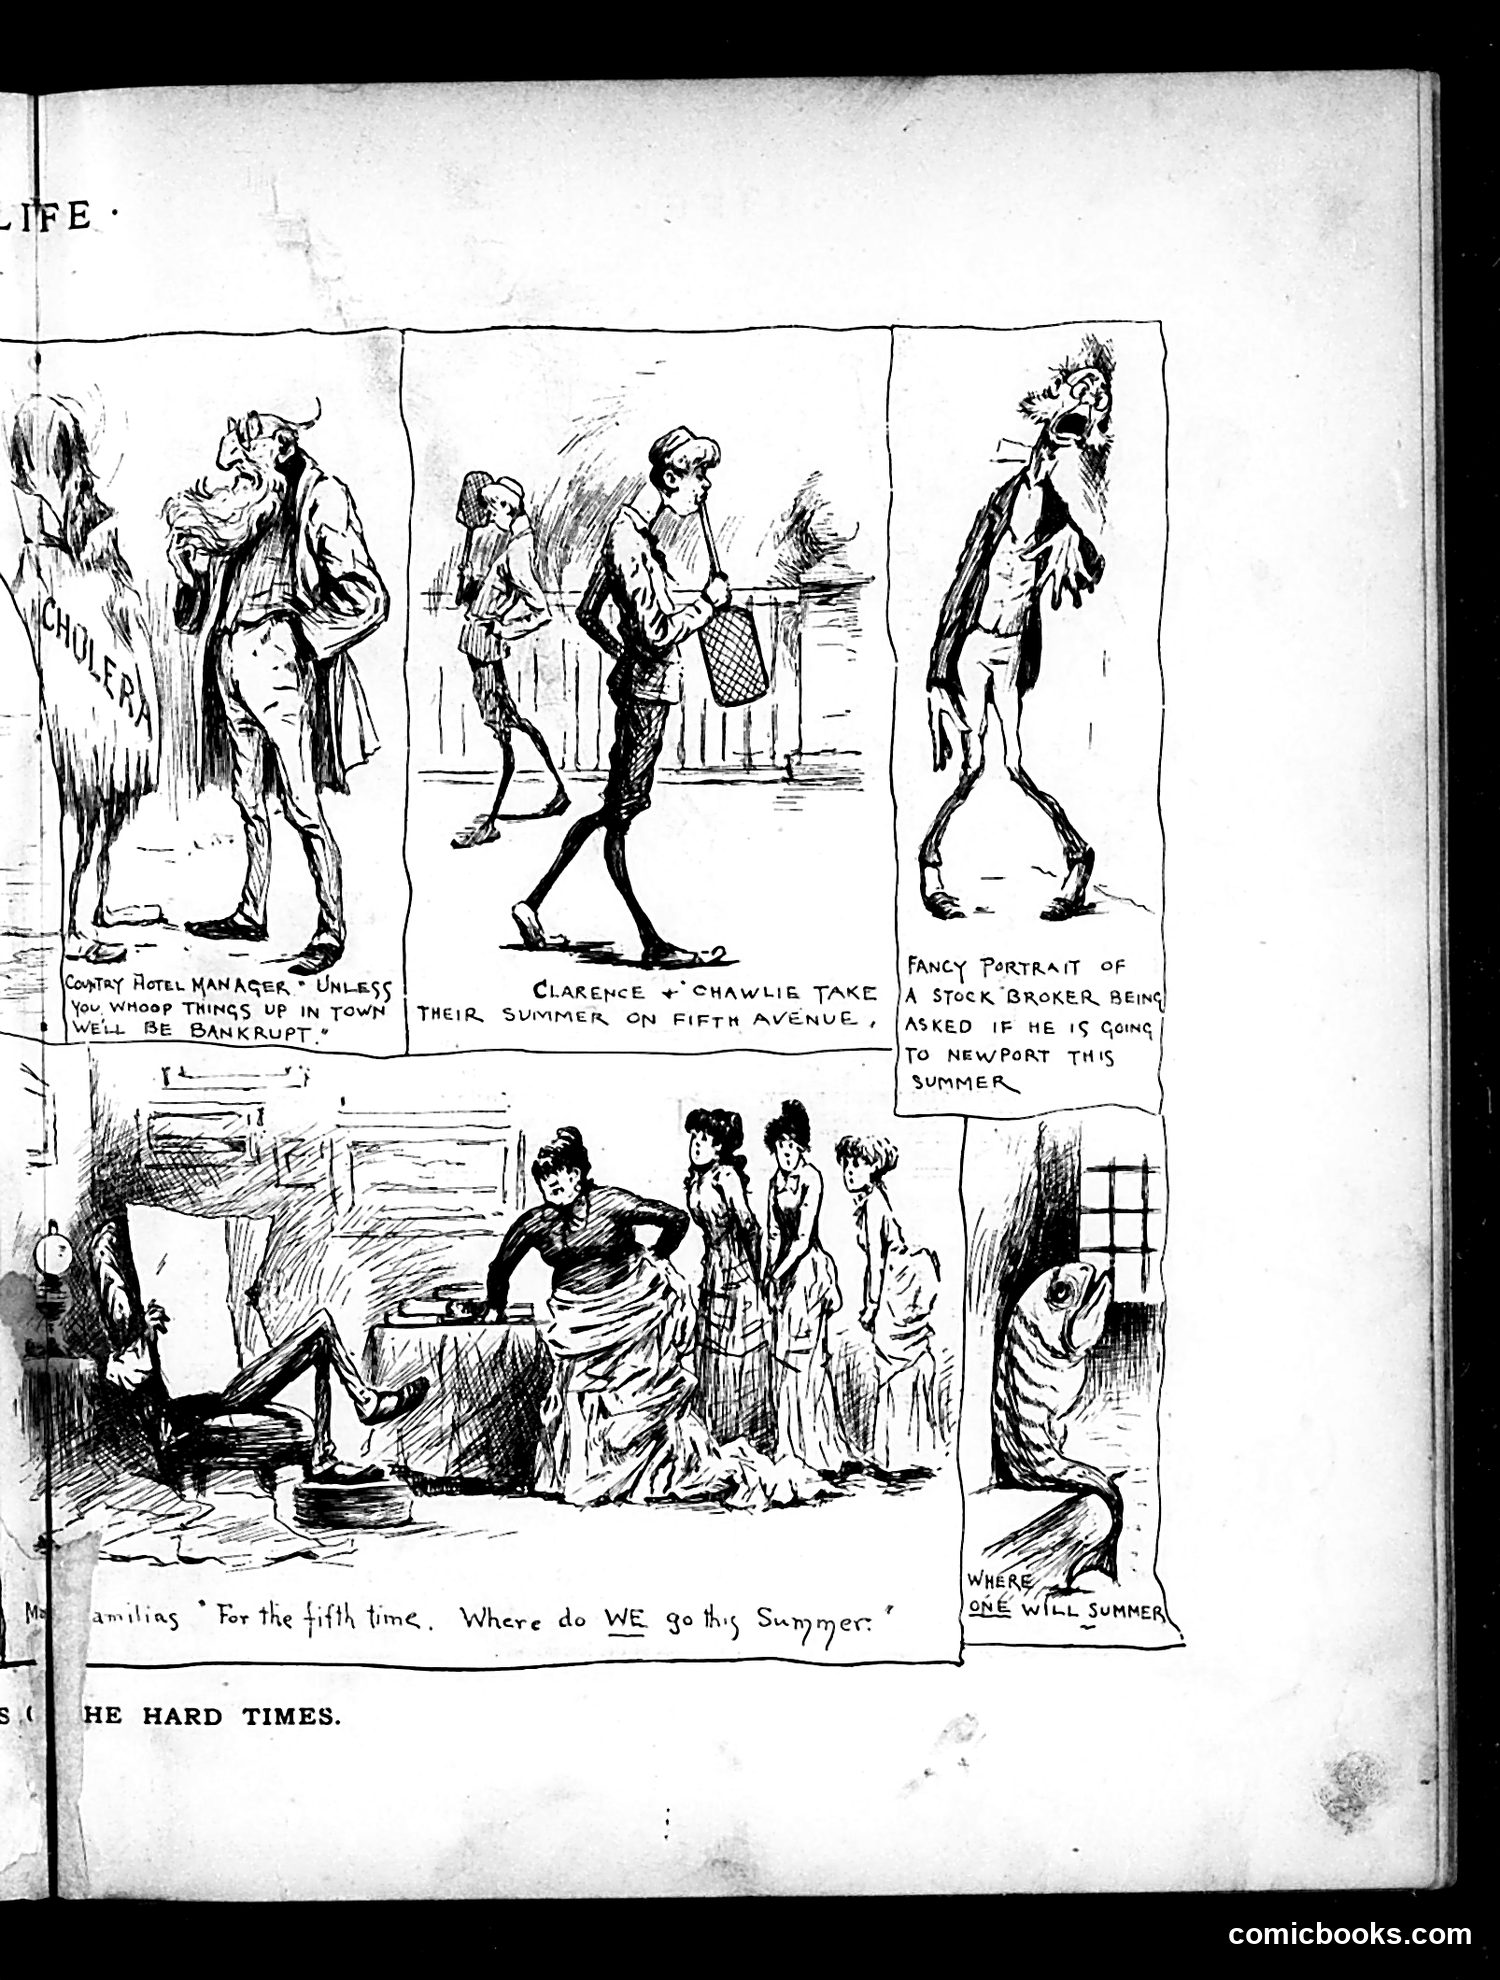 LIFE ·
CHOLERA
COUNTRY HOTEL MANAGER. "UNLESS
YOU WHOOP THINGS UP IN TOWN
WE'LL BE BANKRUPT."
CLARENCE + CHAWLIE TAKE
THEIR SUMMER ON FIFTH AVENUE.
FANCY PORTRAIT OF
A STOCK BROKER BEING
ASKED IF HE IS GOING
TO NEWPORT THIS
SUMMER
amilias "For the fifth time. Where do WE go this Summer."
WHERE
ONE WILL SUMMER
HE HARD TIMES.
comicbooks.com